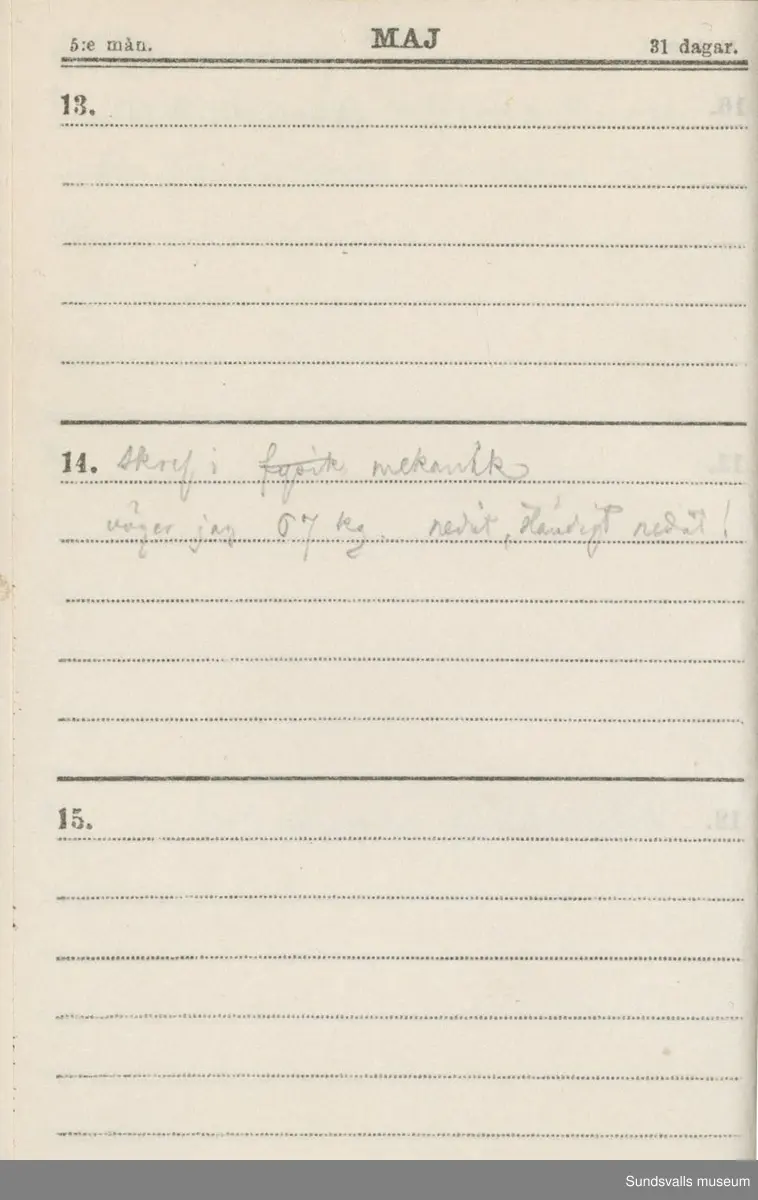 5:e mån. MAJ 31 dagar.
13.
14. skref i fysik mekanik
väger jag 67 kg. nedåt, ständigt nedåt!
15.
Sundsvalls museum